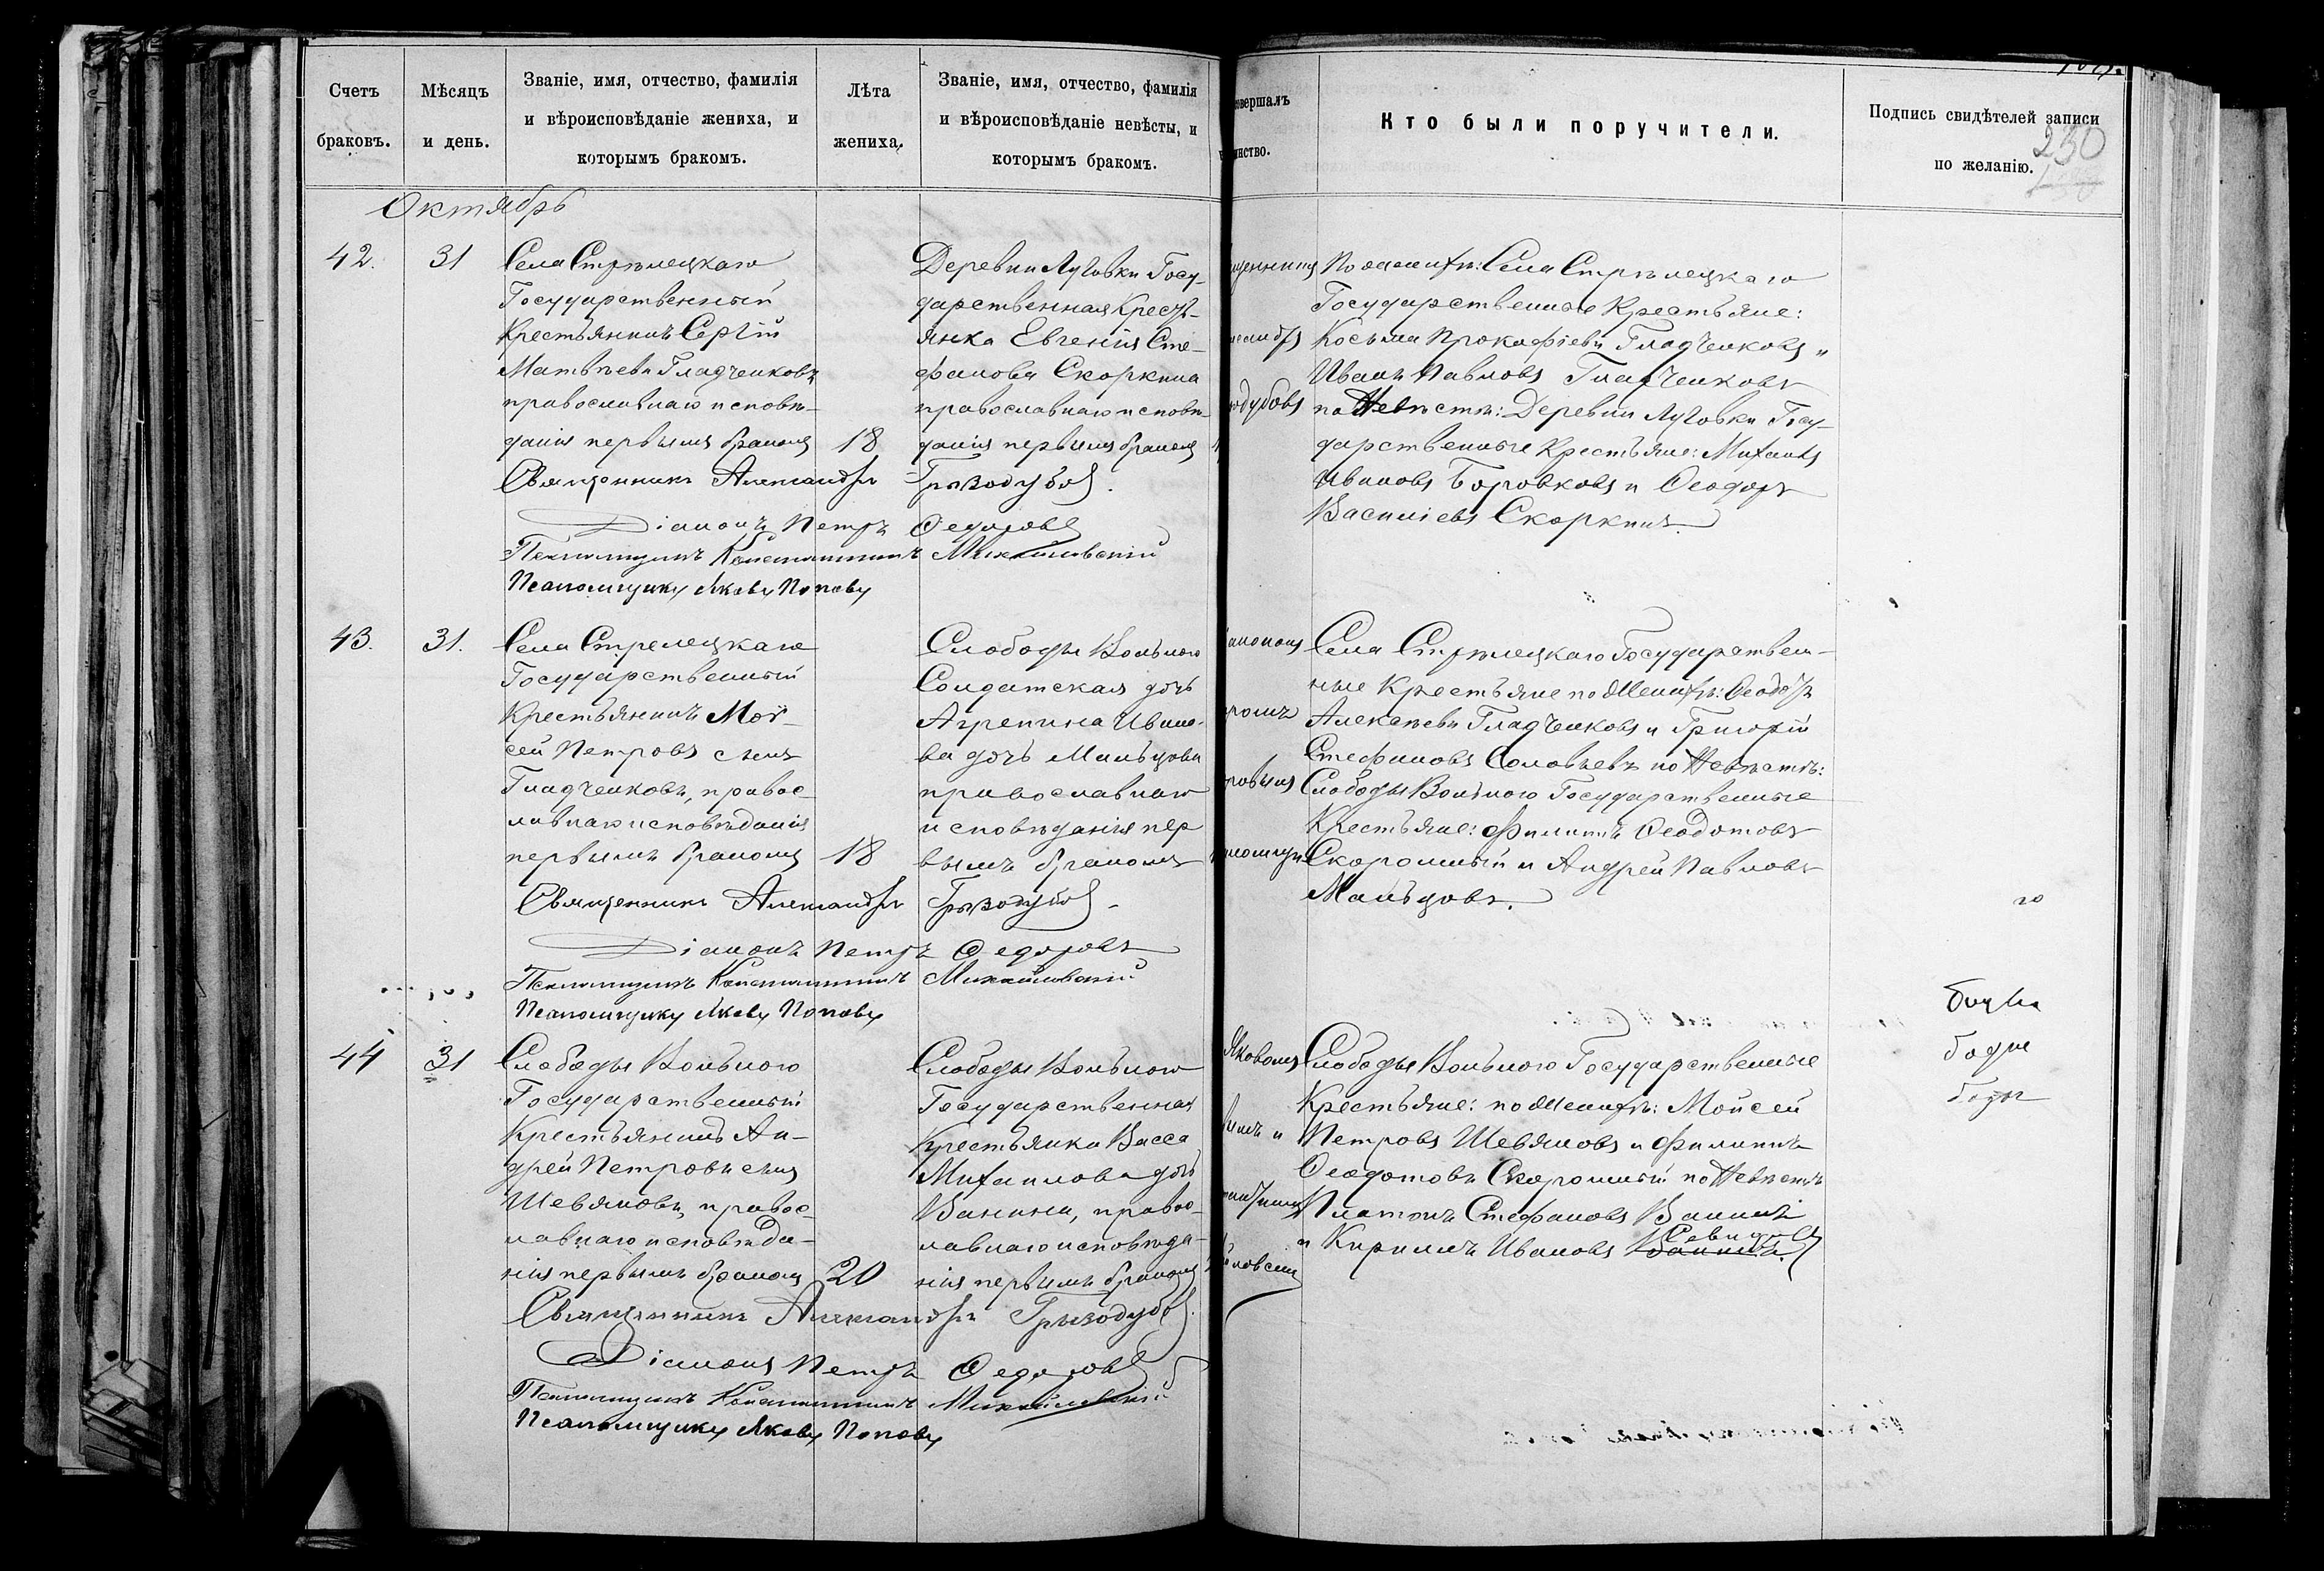 Счетъ
браковъ.
Мѣсяцъ
и день.
Званіе, имя, отчество, фамилія
и вѣроисповѣданіе жениха, и
которымъ бракомъ.
Лѣта
жениха.
Званіе, имя, отчество, фамилія
и вѣроисповѣданіе невѣсты, и
которымъ бракомъ.
Кто были поручители.
Подпись свидѣтелей записи
по желанію.
230
Октябрь
42.
31
Села Стрѣлецкаго
Государственный
Крестьянинъ Сергій
Матвѣевъ Гладченковъ
православнаго исповѣ-
данія первымъ бракомъ
18
Деревни Луговки Госу-
дарственная Кресть-
янка Евгенія Сте-
фанова Скоркина
православнаго исповѣ-
данія первымъ бракомъ
По женихѣ: Села Стрѣлецкаго
Государственные Крестьяне:
Косьма Прокофіевъ Гладченковъ и
Иванъ Павловъ Гладченковъ
по Невѣстѣ: Деревни Луговки Госу-
дарственные Крестьяне: Михаилъ
Ивановъ Боровковъ и Ѳеодоръ
Василіевъ Скоркинъ
Священникъ Александръ Грызодубов.
Діаконъ Петръ Ѳедоровъ
Псаломщикъ Константинъ Михайловскій
Псаломщикъ Яковъ Поповъ
43.
31.
Села Стрелецкаго
Государственный
Крестьянинъ Мой-
сей Петровъ сынъ
Гладченковъ, правос-
лавнаго исповѣданія
первымъ бракомъ
18
Слободы Вольного
Солдатская дочь
Агрепина Ивано-
ва дочь Мальцова
православнаго
исповѣданія пер
вымъ бракомъ
Села Стрѣлецкаго Государствен-
ные Крестьяне по Женихѣ: Ѳеодоръ
Алексѣевъ Гладченковъ и Григорій
Стефановъ Соловьевъ по Невѣстѣ:
Слободы Вольного Государственные
Крестьяне: Филиппъ Ѳеодотовъ
Скоромный и Андрей Павловъ
Мальцовъ.
Священникъ Александръ Грызодубов
Діаконъ Петръ Ѳедоровъ
Псаломщикъ Константинъ Михайловскій
Псаломщикъ Яковъ Поповъ
44
31
Слободы Вольного
Государственный
Крестьянинъ Ан-
дрей Петровъ сынъ
Шевяковъ, правос-
лавнаго исповѣда-
нія первымъ бракомъ
20
Слободы Вольного
Государственная
Крестьянка Васса
Михаилова дочь
Ванина, правос-
лавнаго исповѣда-
нія первымъ бракомъ
Слободы Вольного Государственные
Крестьяне: по Женихѣ: Мойсей
Петровъ Шевяковъ и Филиппъ
Ѳеодотовъ Скоромный по Невѣстѣ
Платонъ Стефановъ Ванинъ
и Кирилъ Ивановъ
Священникъ Александръ Грызодубов.
Діаконъ Петръ Ѳедоровъ
Псаломщикъ Константинъ Михайловскій
Псаломщикъ Яковъ Поповъ